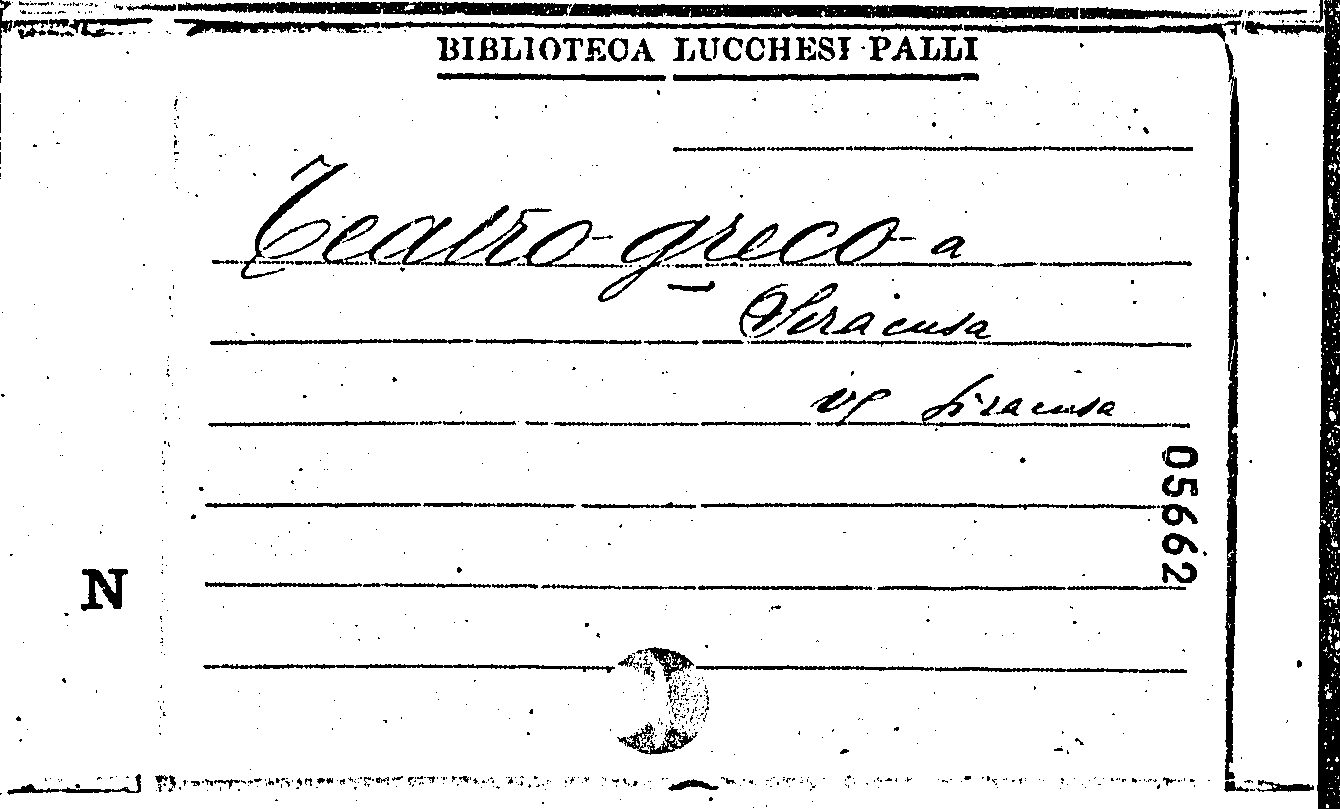 BIBLIOTECA LUCCHESI PALLI
Teatro greco a
Siracusa
vg Siracusa
05662
N